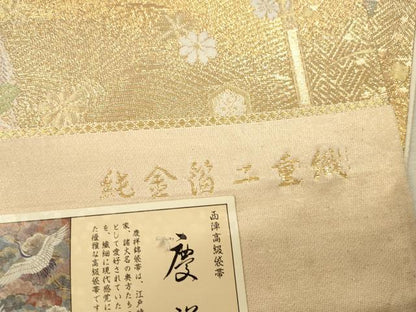 純金箔二重織
西陣高級袋帯
慶祥
慶祥錦袋帯は、江戸
家、諸大名の奥方たち
として愛好されていた
を、繊細に現代感覚に
た優雅な高級袋帯です